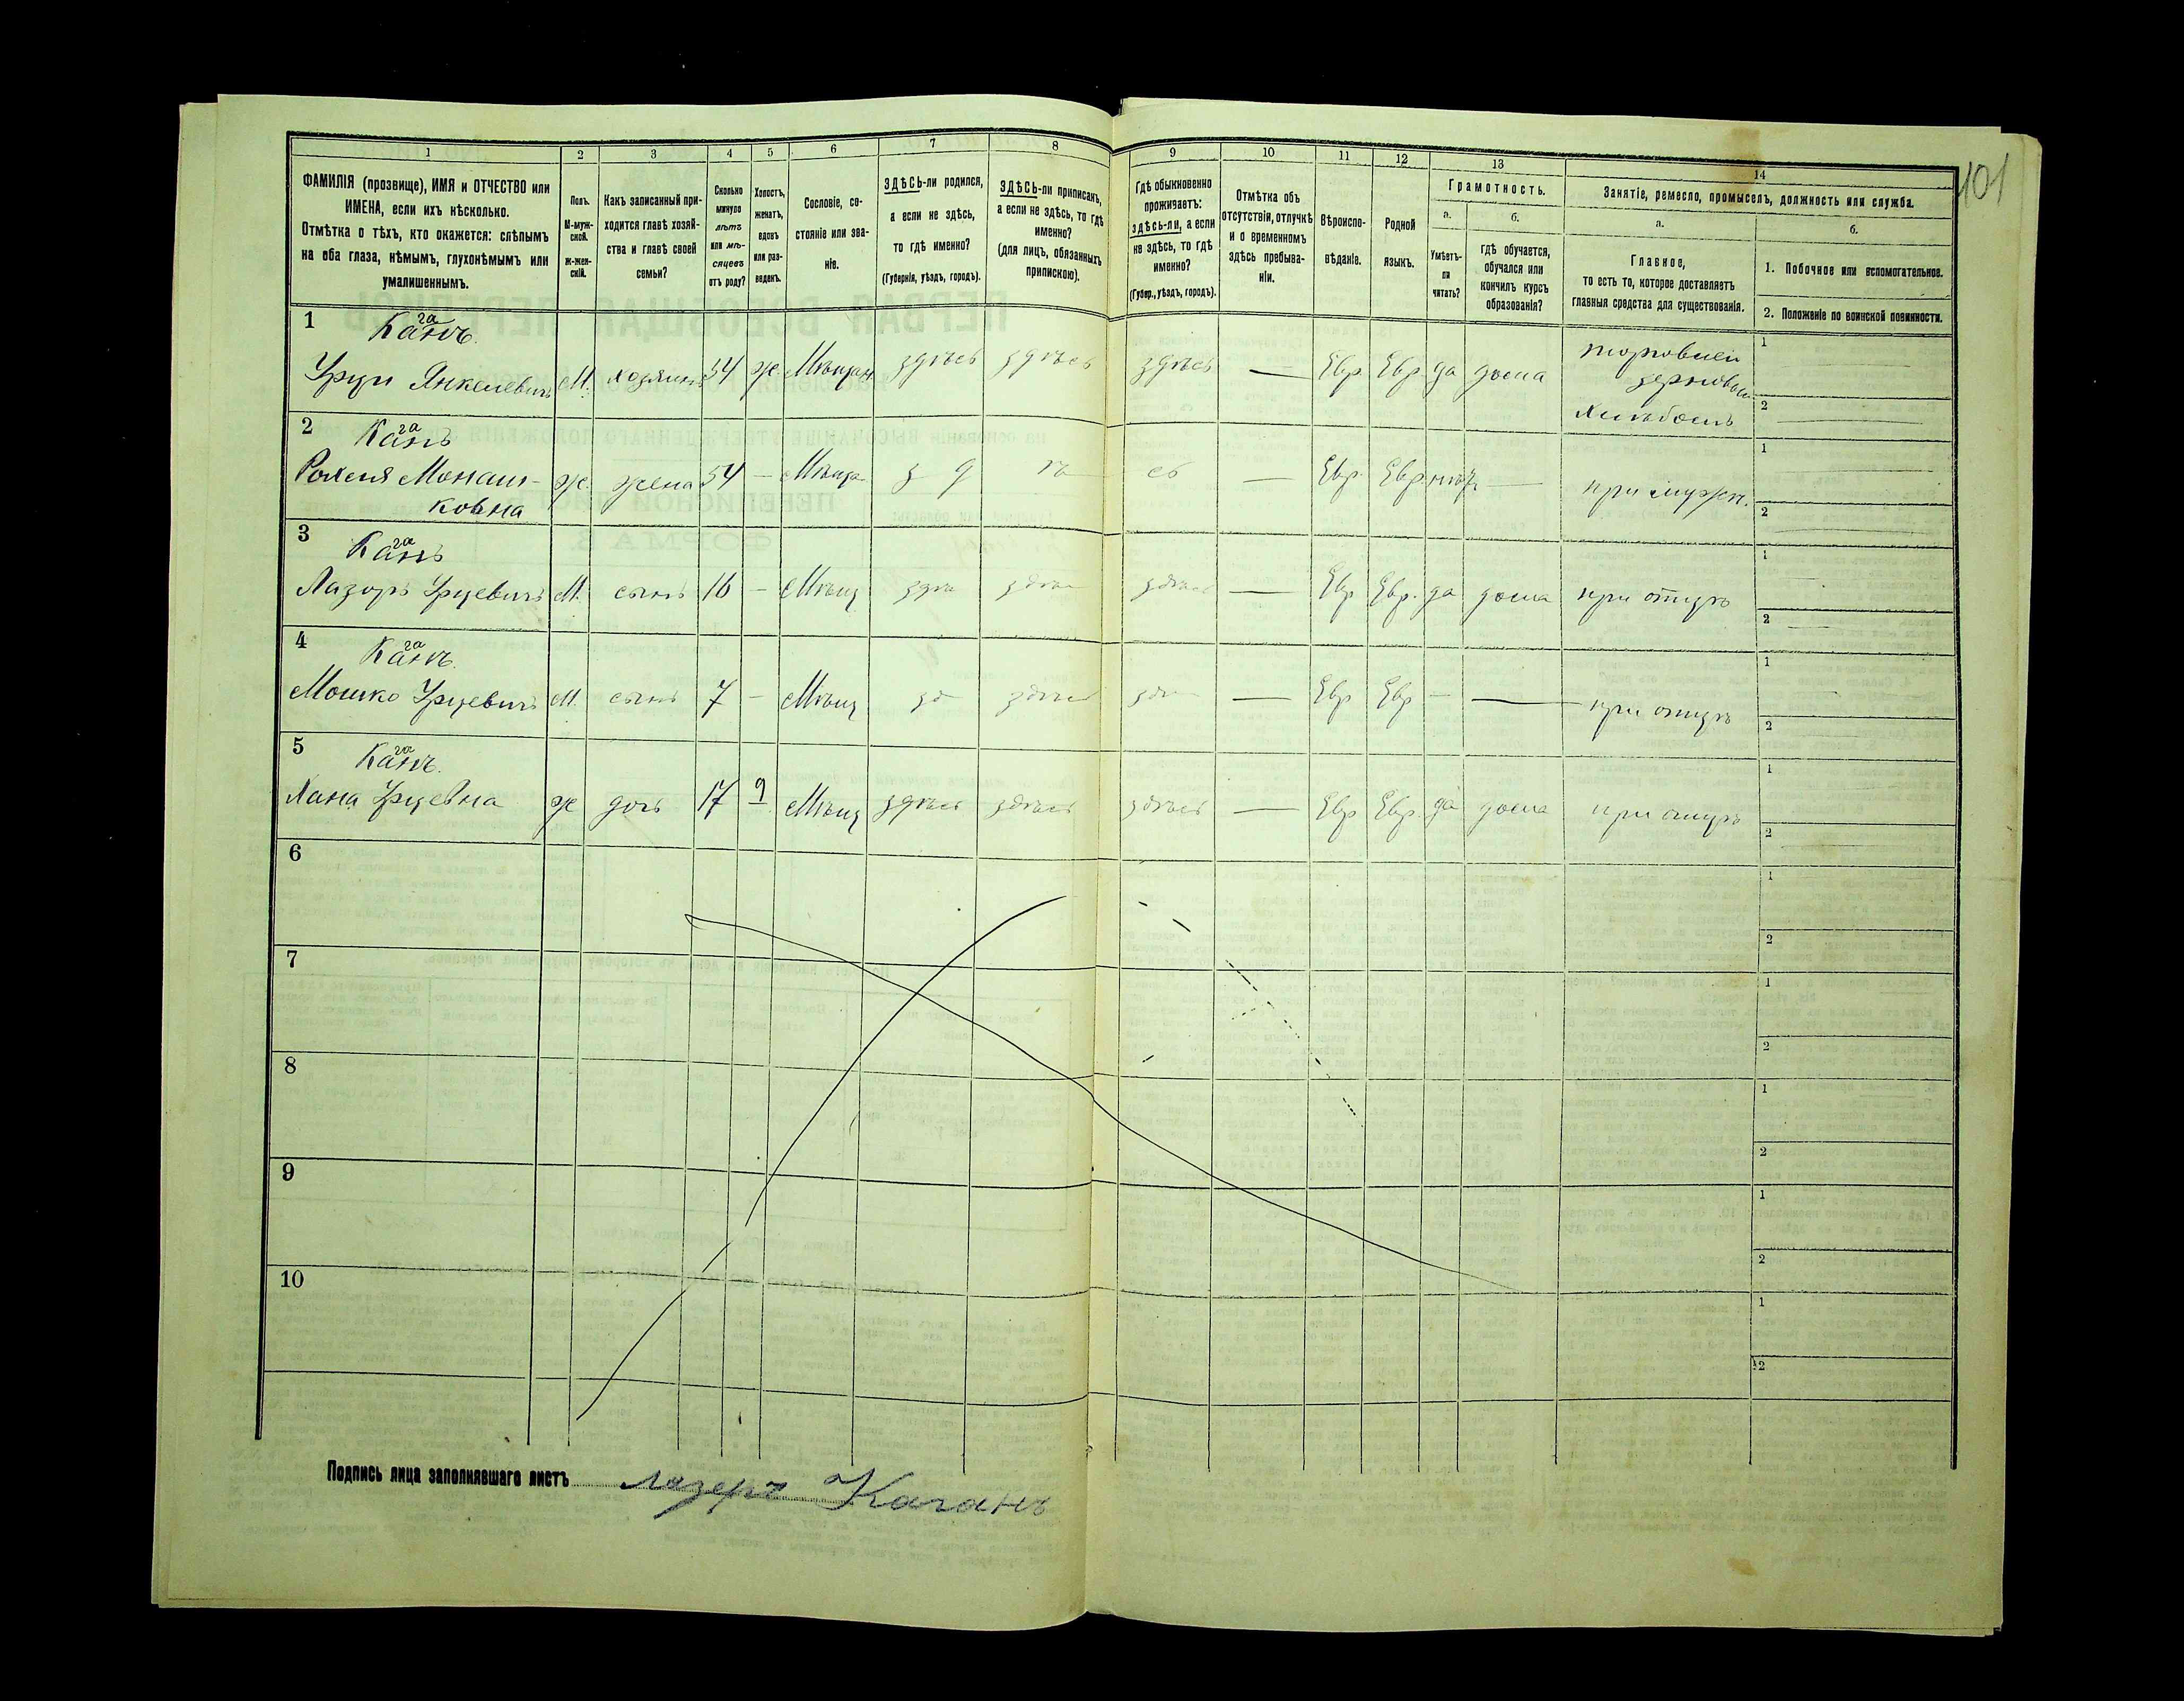 101
1 2 3 4 5 6 7 8 9 10 11 12 13 14
ФАМИЛІЯ (прозвище), ИМЯ и ОТЧЕСТВО или
ИМЕНА, если ихъ нѣсколько.
Отмѣтка о тѣхъ, кто окажется: слѣпымъ
на оба глаза, нѣмымъ, глухонѣмымъ или
умалишеннымъ.
Полъ.
М-муж-
ской.
Ж-жен-
скій.
Какъ записанный при-
ходится главѣ хозяй-
ства и главѣ своей
семьи?
Сколько
минуло
лѣтъ
или мѣ-
сяцевъ
отъ роду?
Холостъ,
женатъ,
вдовъ
или раз-
веденъ.
Сословіе, со-
стояніе или зва-
ніе.
ЗДѢСЬ-ли родился,
а если не здѣсь,
то гдѣ именно?
(Губернія, уѣздъ, городъ).
ЗДѢСЬ-ли приписанъ,
а если не здѣсь, то гдѣ
именно?
(для лицъ, обязанныхъ
припискою).
Гдѣ обыкновенно
проживаетъ:
здѣсь-ли, а если
не здѣсь, то гдѣ
именно?
(Губер., уѣздъ, городъ).
Отмѣтка объ
отсутствіи, отлучкѣ
и о временномъ
здѣсь пребыва-
ніи.
Вѣроиспо-
вѣданіе.
Родной
языкъ.
Грамотность.
а.
Умѣетъ-
ли
читать?
б.
гдѣ обучается,
обучался или
кончилъ курсъ
образованія?
Занятіе, ремесло, промыселъ, должность или служба.
а.
Главное,
то есть то, которое доставляетъ
главныя средства для существованія.
б.
1. Побочное или вспомогательное.
2. Положеніе по воинской повинности.
1
га
Канъ.
Урци Янкелевичъ М. хозяинъ 54 ж. Мѣщан здѣсь здѣсь здѣсь — Евр. Евр. да дома
торговлей
зерновым
хлѣбомъ
1
2
2
га
Канъ
Рохля Монаш-
ковна
ж. жена 54 — Мѣща з д ѣ сь — Евр. Евр. нѣтъ — при мужѣ.
1
2
3
га
Канъ
Лазоръ Урцевичъ М. сынъ 16 — Мѣщ здѣ здѣсь здѣсь — Евр Евр. да дома при отцѣ
1
2
4
га
Канъ.
Мошко Урцевичъ М. сынъ 7 — Мѣщ зд здѣсь здѣ — Евр Евр — — при отцѣ
1
2
5
га
Канъ.
Хана Урцевна ж дочь 17 д Мѣщ здѣсь здѣсь здѣсь — Евр Евр. да дома при отцѣ
1
2
6
1
2
7
1
2
8
1
2
9
1
2
10
1
2
Подпись лица заполнявшаго листъ Лазеръ Каганъ